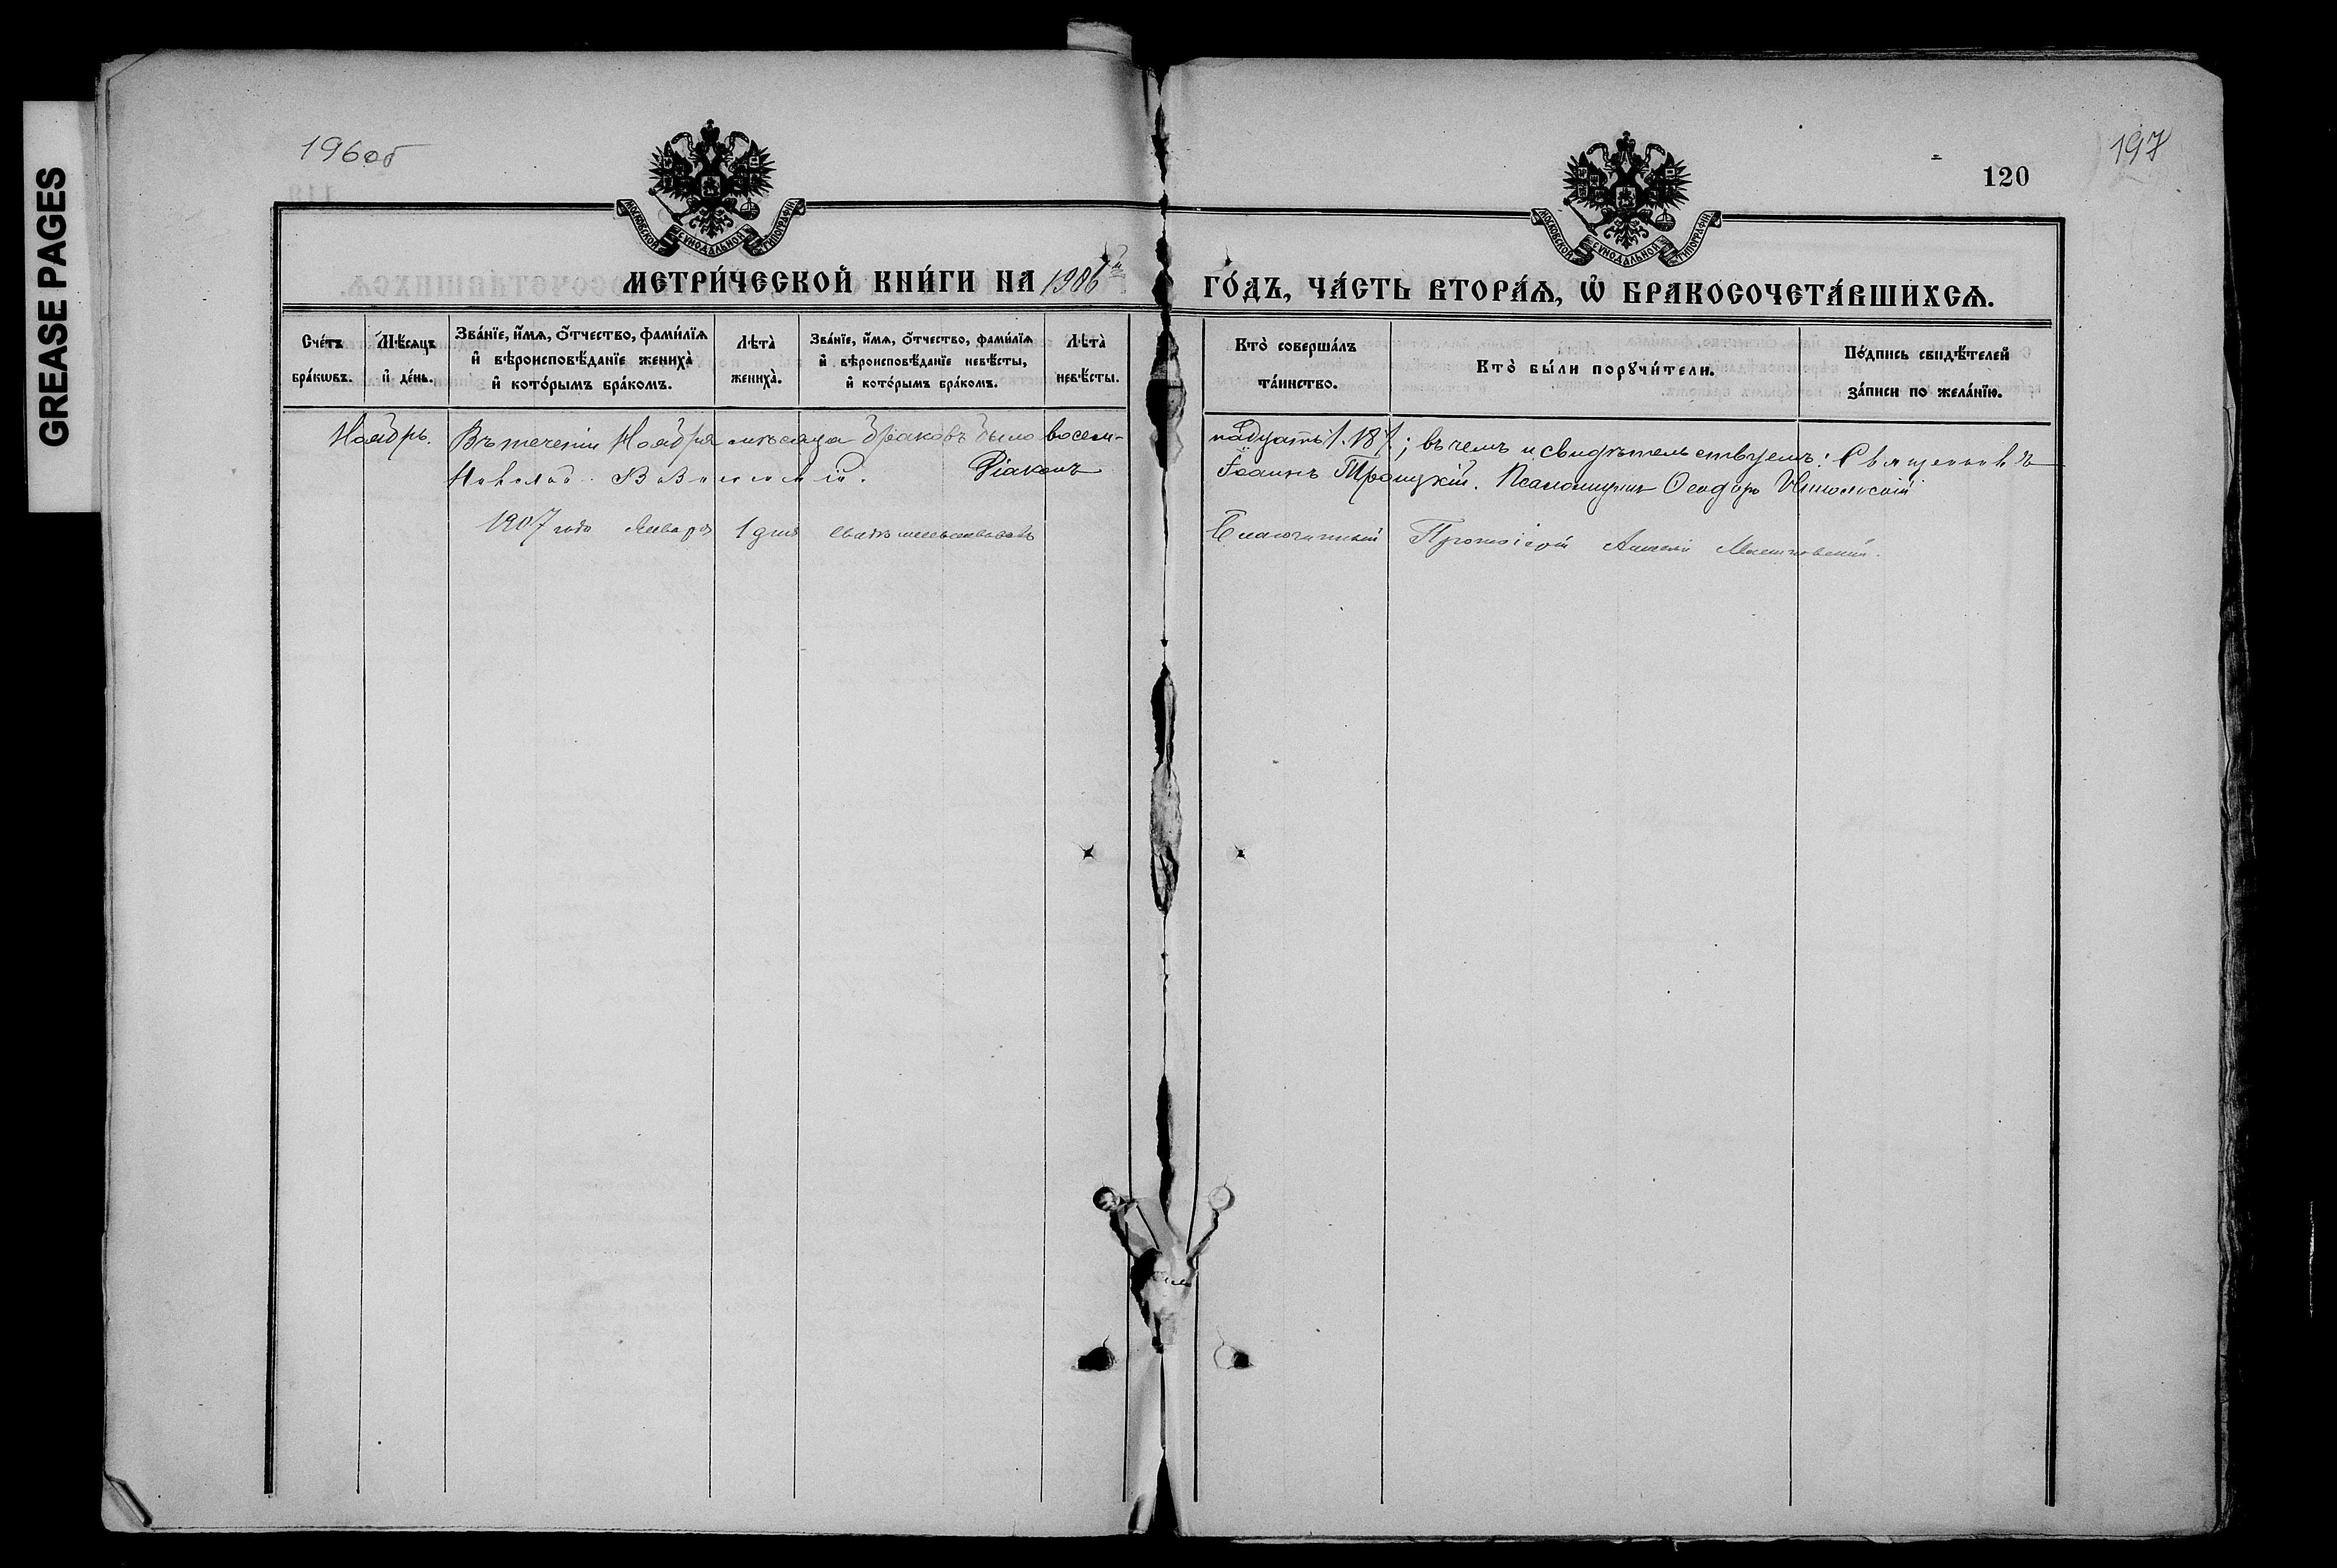 GREASE PAGES
196об
197
120
МОСКОВСКОЙ СѴНОДАЛЬНОЙ ТИПОГРАФІИ
МОСКОВСКОЙ СѴНОДАЛЬНОЙ ТИПОГРАФІИ
МЕТРИ́ЧЕСКОЙ КНИ́ГИ НА 1906 й ГО́ДЪ, ЧА́СТЬ ВТОРА́Ѧ, Ѽ БРАКОСОЧЕТА́ВШИХСѦ.
Сче́тъ бра́кѡвъ.
Мѣ́сяцъ и҆ де́нь.
Зва́нїе, и҆́мѧ, ѻ҆́тчество, фами́лїѧ и҆ вѣроисповѣ́данїе жениха̀ и҆ кото́рымъ бра́комъ.
Лѣта̀ жениха̀.
Зва́нїе, и҆́мѧ, ѻ҆́тчество, фами́лїѧ и҆ вѣроисповѣ́данїе невѣ́сты, и҆ кото́рымъ бра́комъ.
Лѣта̀ невѣ́сты.
Кто̀ соверша́лъ та́инство.
Кто̀ бы́ли порꙋчи́тели.
По́дпись свидѣ́телей за́писи по жела́нїю.
Ноябрь. Въ теченіи Ноября мѣсяца браковъ было восем-надцать /.18/.; въ чемъ и свидѣтельствуемъ: Священникъ
Николай Діаконъ Іоаннъ Троицкій. Псаломщикъ Ѳеодоръ Никольскій
1907 года Января 1 дня свидѣтельствовалъ Благочинный Протоіерей